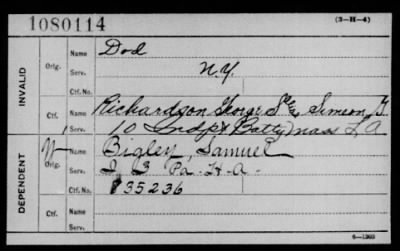 1080114 (3-H-4)
INVALID
Orig. Name Dod
Serv. N.Y.
Ctf. No.
Ctf. Name Richardson George Simeon G.
1 Serv. 10 Indpt Batty Mass L A
DEPENDENT
W Orig. Name Bigley, Samuel
Serv. I, 3 Pa. H.A.
Ctf. No. 835236
Ctf. Name
Serv.
6-1260